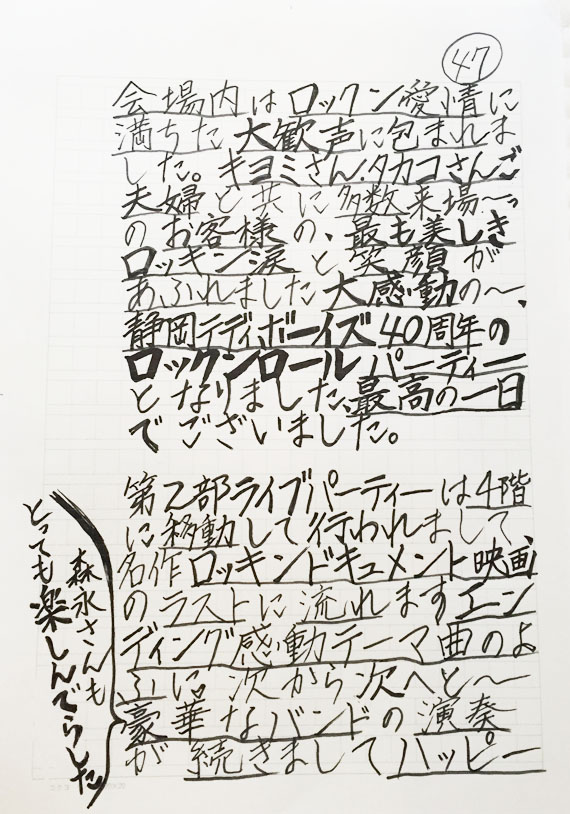 47
会場内はロックン愛情に
満ちた大歓声に包まれま
した。キヨミさん・タカコさんご
夫婦と共に多数来場〜っ
のお客様の、最も美しき
ロッキン涙と笑顔が
あふれました大感動の〜、
静岡テディボーイズ40周年の
ロックンロールパーティー
となりました、最高の一日
でございました。
第2部ライブパーティーは4階
に移動して行われまして、
名作ロッキンドキュメント映画
のラストに流れますエン
ディング感動テーマ曲のよ
ふに、次から次へと〜
豪華なバンドの演奏
が続きましてハッピー
森永さんも
とっても楽しんでらした